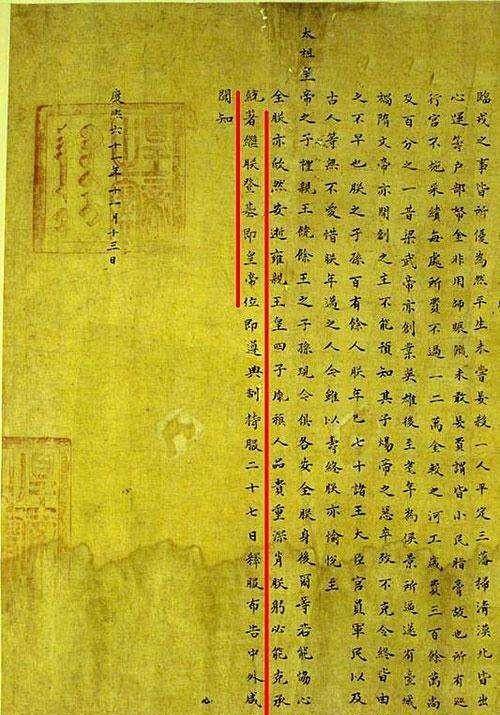 臨戎之事皆所優為然平生未嘗妄殺一人平定三藩掃清漠北皆出
心運籌戶部帑金非用師賑饑未敢妄費謂皆小民脂膏故也所有巡
行宮不施采繢每處所費不過一二萬金較之河工歲費三百餘萬尚
及百分之一昔梁武帝亦創業英雄後至耄年為侯景所逼遂有臺城
禍隋文帝亦開創之主不能預知其子煬帝之惡卒致不克令終皆由
之不早也朕之子孫百有餘人朕年已七十諸王大臣官員軍民以及
古人等無不愛惜朕年邁之人今雖以壽終朕亦愉悅至
太祖皇帝之子禮親王饒餘王之子孫現今俱各安全朕身後爾等若能協心
全朕亦欣然安逝雍親王皇四子胤禛人品貴重深肖朕躬必能克承
統著繼朕登基即皇帝位即遵典制持服二十七日釋服布告中外咸
聞知
康熙六十一年十一月十三日